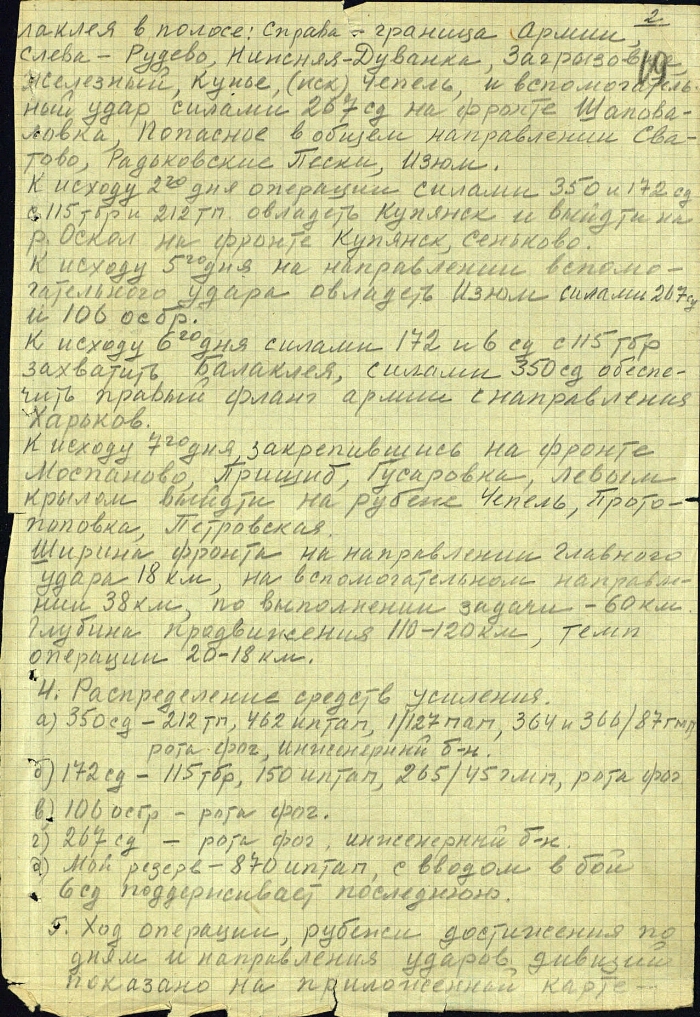 2
19
лаклея в полосе: Справа – граница Армии,
слева – Рудево, Нижняя-Дуванка, Загрызовка,
Железный, Кунье, (иск) Чепель, и вспомогатель-
ный удар силами 267 сд на фронте Шапова-
ловка, Попасное в общем направлении Сва-
тово, Радьковские Пески, Изюм.
К исходу 2го дня операции силами 350 и 172 сд
с 115 тбр и 212 тп. овладеть Купянск и выйдти на
р. Оскол на фронте Купянск, Сеньково.
К исходу 5го дня на направлении вспомо-
гательного удара овладеть Изюм силами 267 сд
и 106 осбр.
К исходу 6го дня силами 172 и 6 сд с 115 тбр
захватить Балаклея, силами 350 сд обеспе-
чить правый фланг армии с направления
Харьков.
К исходу 7го дня, закрепившись на фронте
Моспаново, Пришиб, Гусаровка, левым
крылом выйдти на рубеж Чепель, Прото-
поповка, Петровская.
Ширина фронта на направлении главного
удара 18 км, на вспомогательном направле-
нии 38 км, по выполнении задачи – 60 км.
Глубина продвижения 110–120 км, темп
операции 20–18 км.
4. Распределение средств усиления.
а) 350 сд – 212 тп, 462 иптап, 1/127 пап, 364 и 366/87 гмп
рота фог, инженерный б-н.
б) 172 сд – 115 тбр, 150 иптап, 265/45 гмп, рота фог
в) 106 осбр – рота фог.
г) 267 сд – рота фог, инженерный б-н.
д) Мой резерв – 870 иптап, с вводом в бой
6 сд поддерживает последнюю.
5. Ход операции, рубежи достижения по
дням и направления ударов дивизий
показано на приложенной карте –